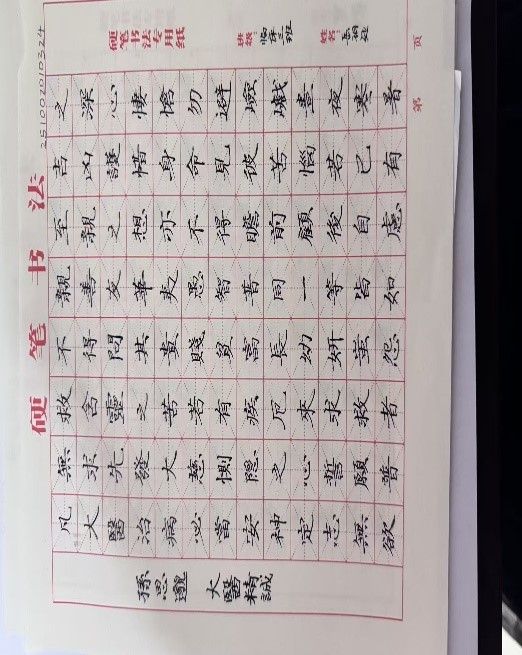 硬笔书法
251002010324
孫思邈 大醫精誠
凡大醫治病必當安神定志無欲
無求先發大慈惻隱之心誓願普
救含靈之苦若有疾厄來求救者
不得問其貴賤貧富長幼妍蚩怨
親善友華夷愚智普同一等皆如
至親之想亦不得瞻前顧後自慮
吉凶護惜身命見彼苦惱若己有
之深心悽愴勿避險巇晝夜寒暑
硬笔书法专用纸
班级: 三班
姓名:
第 页